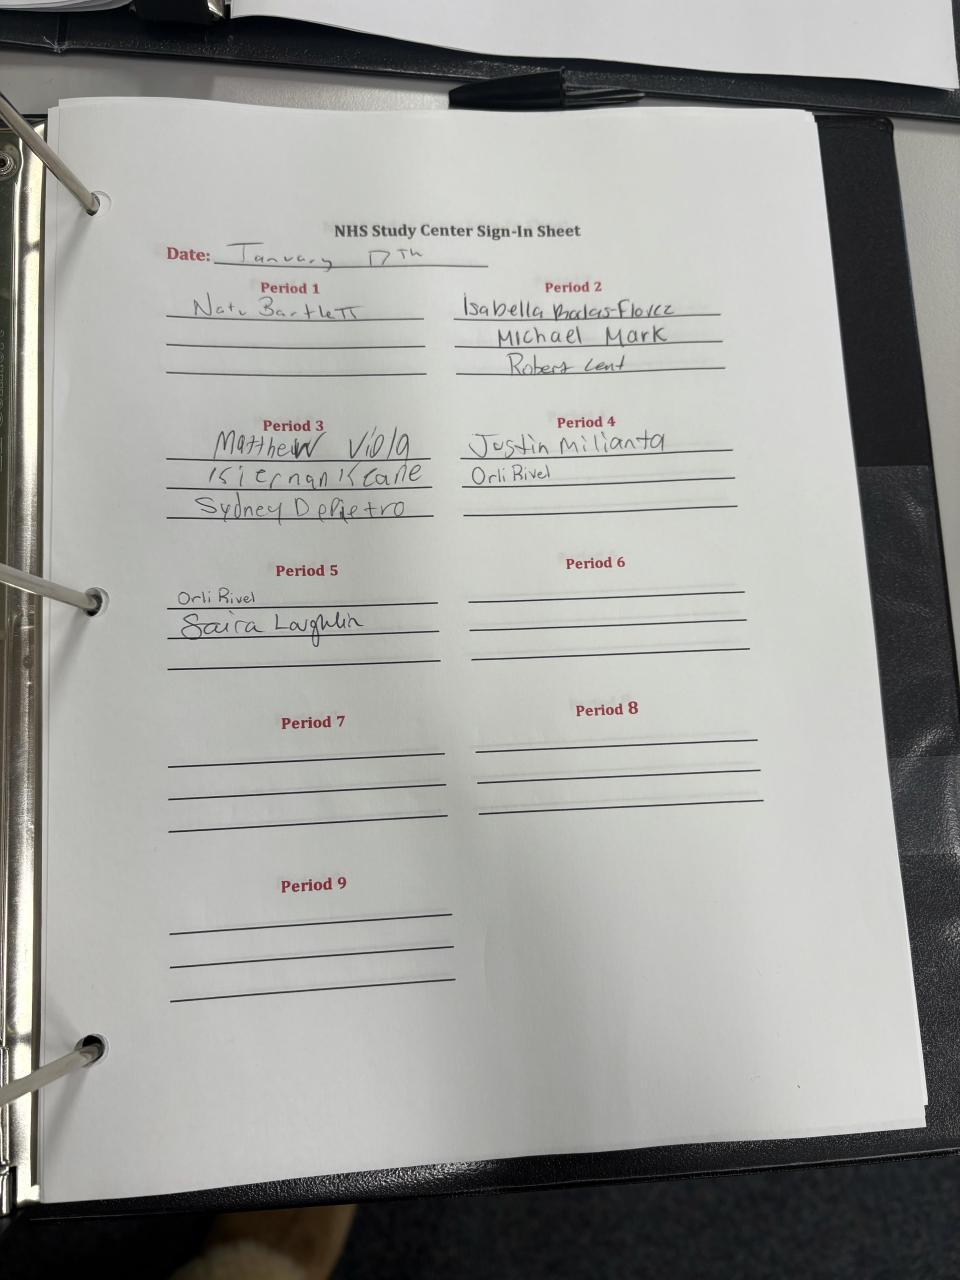 NHS Study Center Sign-In Sheet
Date: January 17th
Period 1
Bartlett
Period 2
Isabella
Michael Mark
Robert Lent
Period 3
Matthew Viola
Kiernan Keane
Sydney DePietro
Period 4
Justin Milianta
Orli Rivel
Period 5
Orli Rivel
Saira Laughlin
Period 6
Period 7
Period 8
Period 9